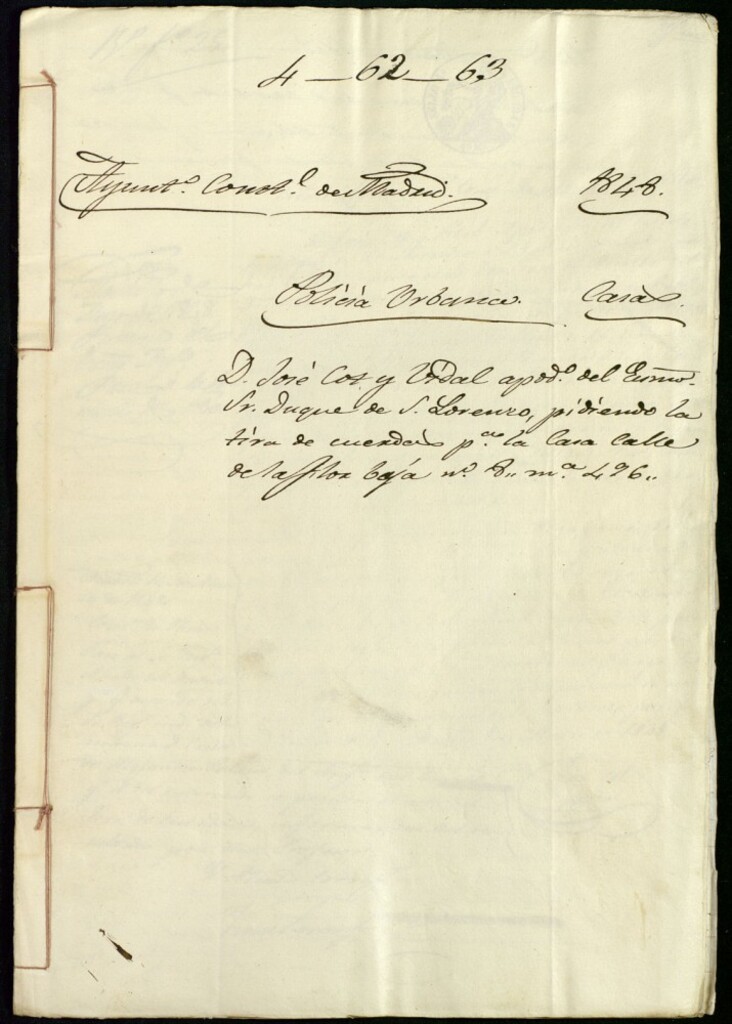 4 — 62 — 63
Ayunt.º Const.l de Madrid. 1848.
Policía Urbana. Casas.
D. José Cot y Vidal apod.º del Exmo.
Sr. Duque de S. Lorenzo, pidiendo la
tira de cuerdas p.ª la Casa Calle
de la flor baja n.º 8,, m.ª 496,,